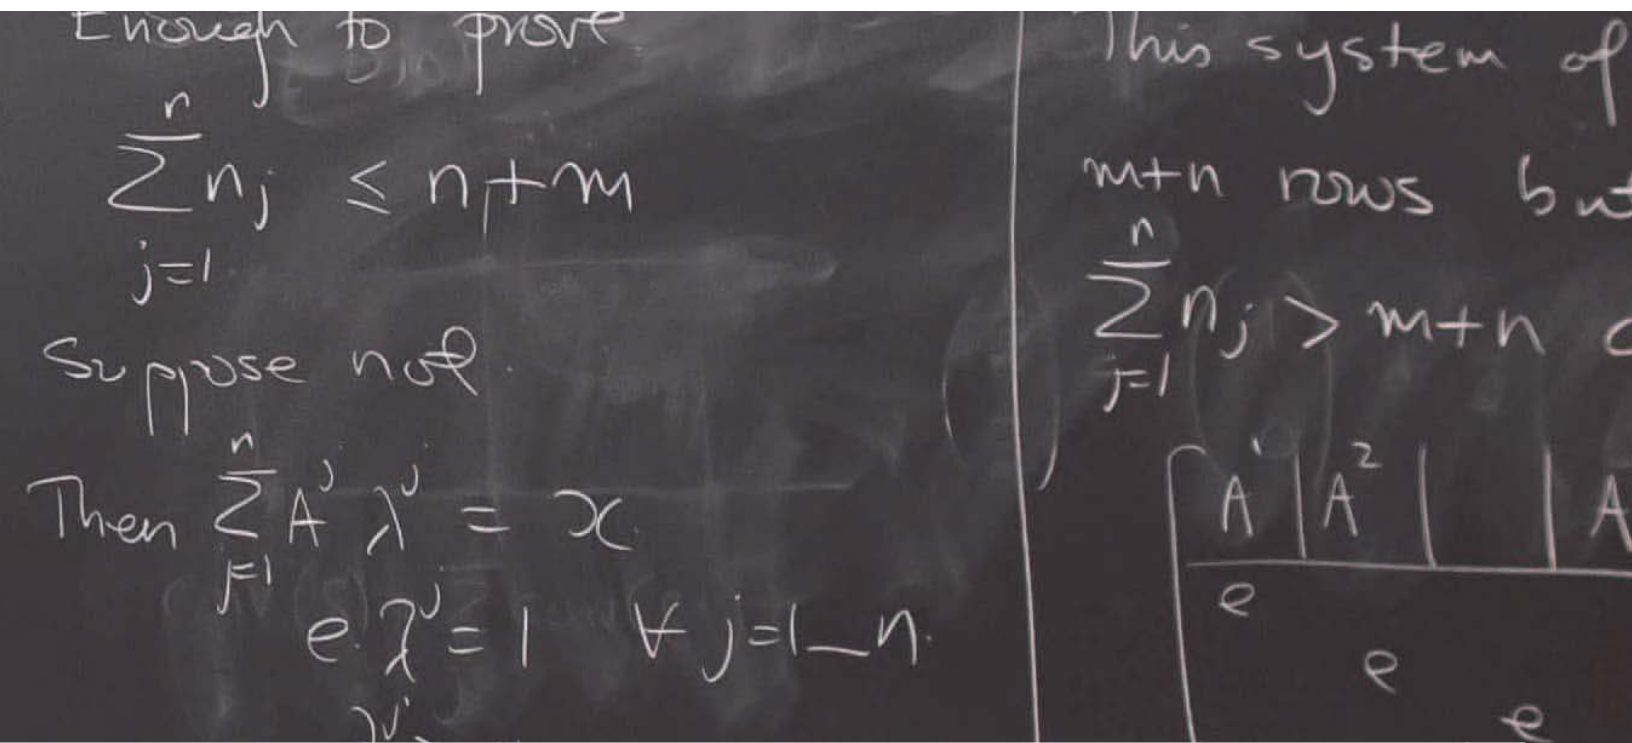 Enough to prove
n
∑ nj ≤ n+m
j=1
Suppose not.
n
Then ∑ A^j λ^j = x
j=1
e.λ^j = 1 ∀ j=1_n.
This system of
m+n rows but
n
∑ nj > m+n
j=1
A^1 | A^2 | | A
e
e
e